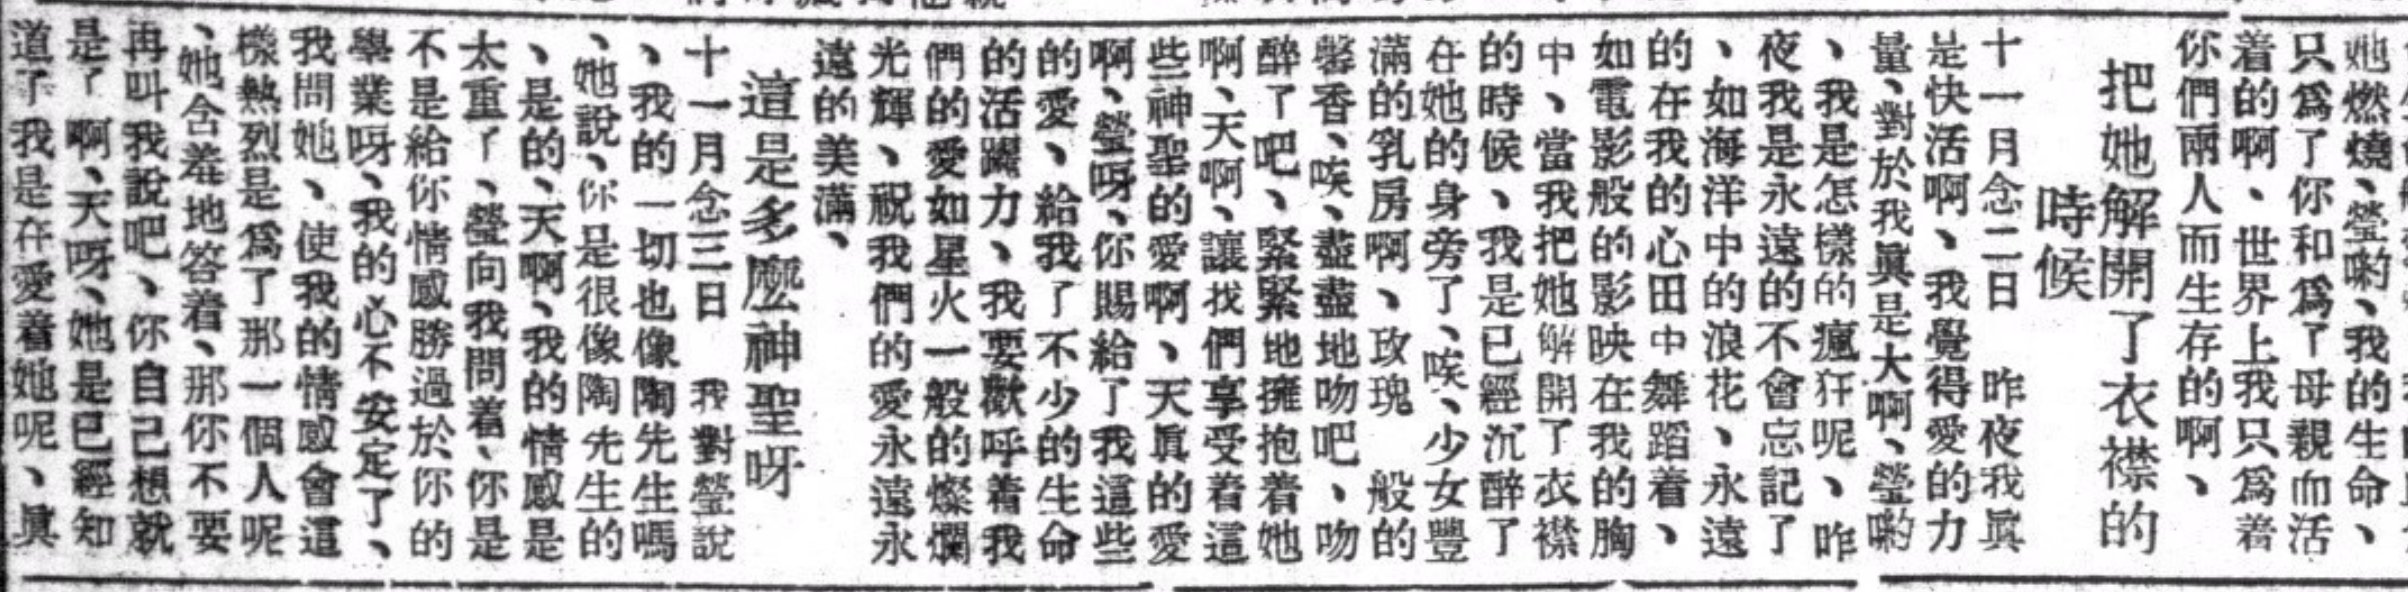 她燃燒、瑩喲、我的生命、
只爲了你和爲了母親而活
着的啊、世界上我只爲着
你們兩人而生存的啊、
把她解開了衣襟的
時候
十一月念二日　昨夜我眞
是快活啊、我覺得愛的力
量、對於我眞是大啊、瑩喲
、我是怎樣的瘋狂呢、昨
夜我是永遠的不會忘記了
、如海洋中的浪花、永遠
的在我的心田中舞蹈着、
如電影般的影映在我的胸
中、當我把她解開了衣襟
的時候、我是已經沉醉了
在她的身旁了、唉、少女豐
滿的乳房啊、玫瑰　般的
馨香、唉、盡盡地吻吧、吻
醉了吧、緊緊地擁抱着她
啊、天啊、讓找們享受着這
些神聖的愛啊、天眞的愛
啊、瑩呀、你賜給了我這些
的愛、給我了不少的生命
的活躍力、我要歡呼着我
們的愛如星火一般的燦爛
光輝、祝我們的愛永遠永
遠的美滿、
這是多麽神聖呀
十一月念三日　我對瑩說
、我的一切也像陶先生嗎
、她說、你是很像陶先生的
、是的、天啊、我的情感是
太重了、瑩向我問着、你是
不是給你情感勝過於你的
學業呀、我的心不安定了、
我問她、使我的情感會這
樣熱烈是爲了那一個人呢
、她含羞地答着、那你不要
再叫我說吧、你自己想就
是了、啊、天呀、她是已經知
道了我是在愛着她呢、眞